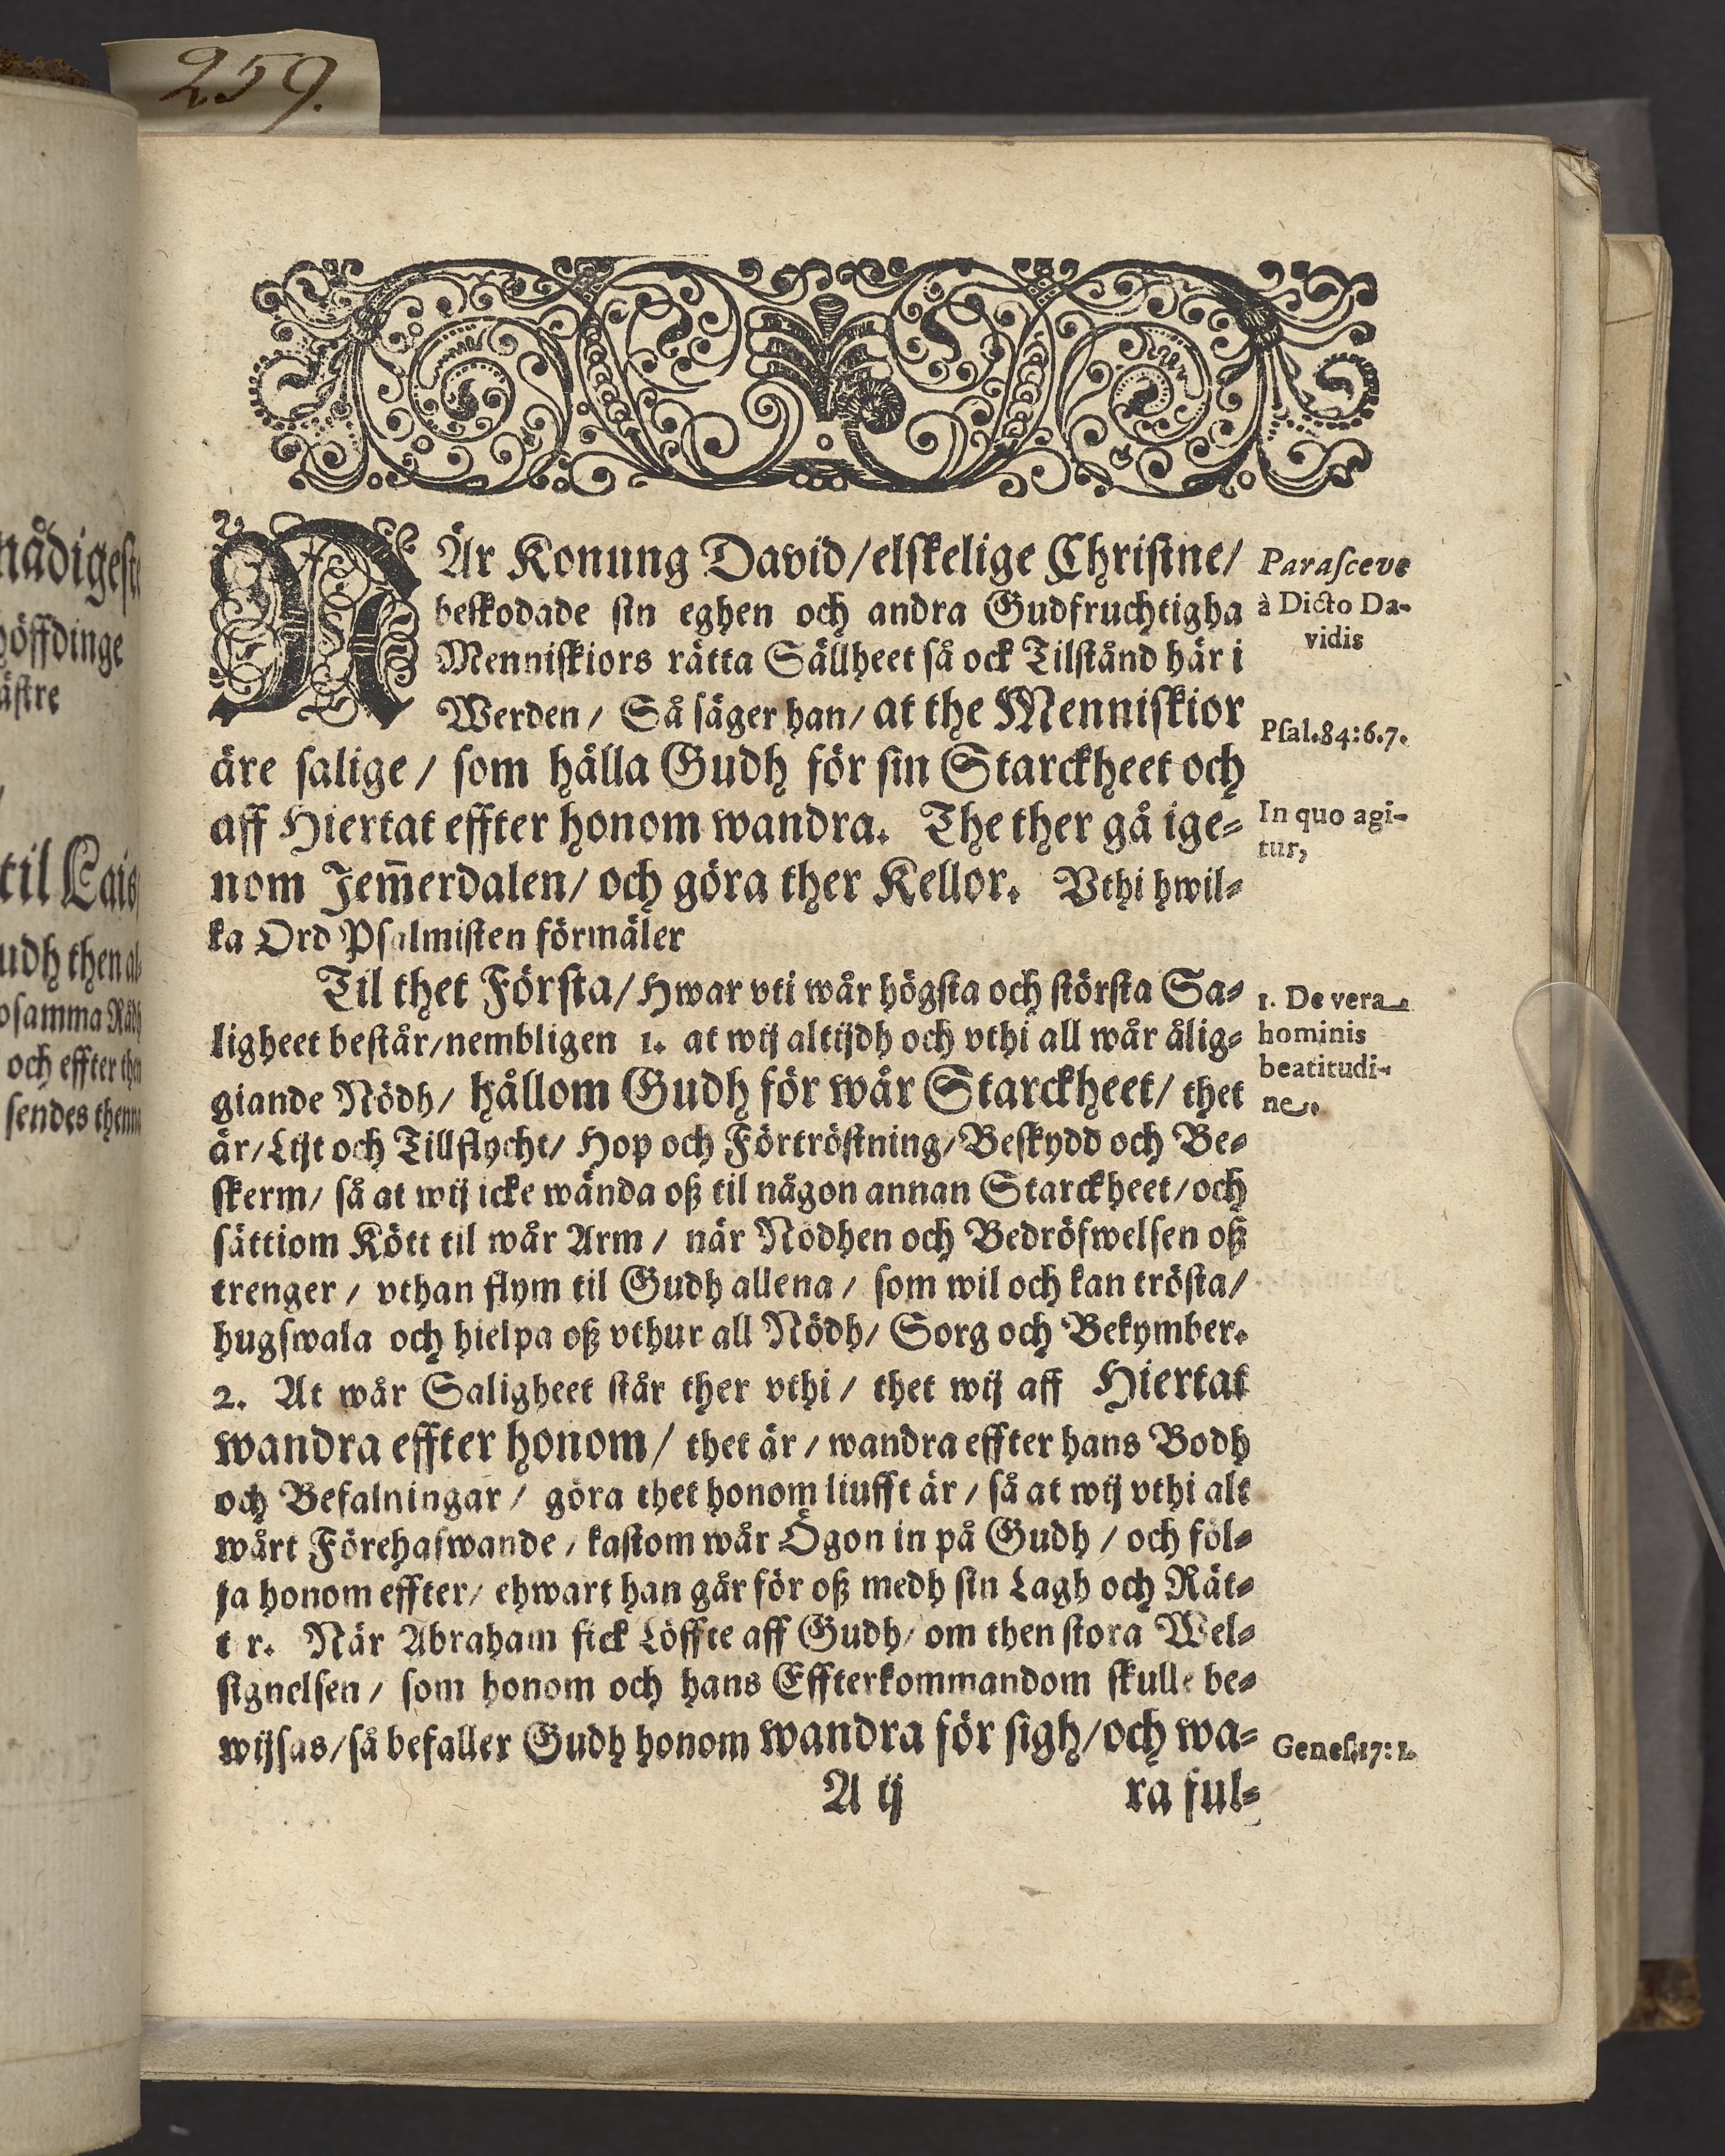 259.
nådigeste
höffdinge
til Lais
udh then al-
osamma Rådh
och effter then
sendes thenna
NÄr Konung David/elskelige Christne/
beskodade sin eghen och andra Gudfruchtigha
Menniskiors rätta Sällheet så ock Tilstånd här i
Werden/ Så säger han/ at the Menniskior
äre salige/ som hålla Gudh för sin Starckheet och
aff Hiertat effter honom wandra. The ther gå ige-
nom Jem̃erdalen/ och göra ther Kellor. Vthi hwil-
ka Ord Psalmisten förmäler
Til thet Första/ Hwar vti wår högsta och största Sa-
ligheet består/nembligen 1. at wij altijdh och vthi all wår ålig-
giande Nödh/ hållom Gudh för wår Starckheet/ thet
är/Lijt och Tillflycht/ Hop och Förtröstning/Beskydd och Be-
skerm/ så at wij icke wända oß til någon annan Starckheet/och
sättiom Kött til wår Arm/ när Nödhen och Bedröfwelsen oß
trenger/ vthan flym til Gudh allena/ som wil och kan trösta/
hugswala och hielpa oß vthur all Nödh/ Sorg och Bekymber.
2. At wår Saligheet står ther vthi/ thet wij aff Hiertat
wandra effter honom/ thet är/ wandra effter hans Bodh
och Befalningar/ göra thet honom liufft är/ så at wij vthi alt
wårt Förehafwande/ kastom wår Ögon in på Gudh/ och föl-
ja honom effter/ ehwart han går för oß medh sin Lagh och Rät-
t r. När Abraham fick Löffte aff Gudh/ om then stora Wel-
signelsen/ som honom och hans Effterkommandom skulle be-
wijsas/så befaller Gudh honom wandra för sigh/och wa-
A ij
ra ful-
Parasceve
à Dicto Da-
vidis
Psal.84:6.7.
In quo agi-
tur,
1. De vera
hominis
beatitudi-
ne.
Genes.17:1.